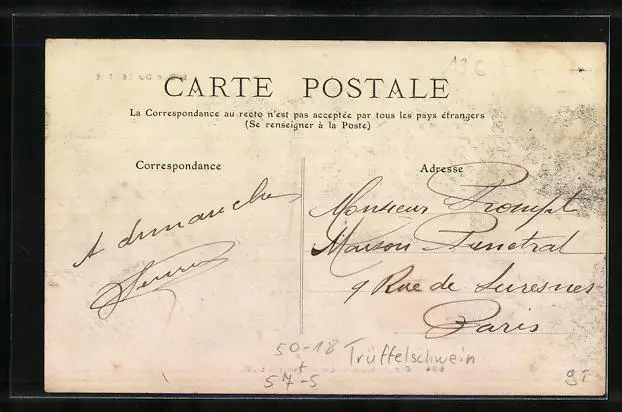 13 C
CARTE POSTALE
La Correspondance au recto n'est pas acceptée par tous les pays étrangers
(Se renseigner à la Poste)
Correspondance
Adresse
A dimanche
Monsieur Prompt
Maison
9 Rue de Suresnes
Paris
50-18 Trüffelschwein
+
57-5